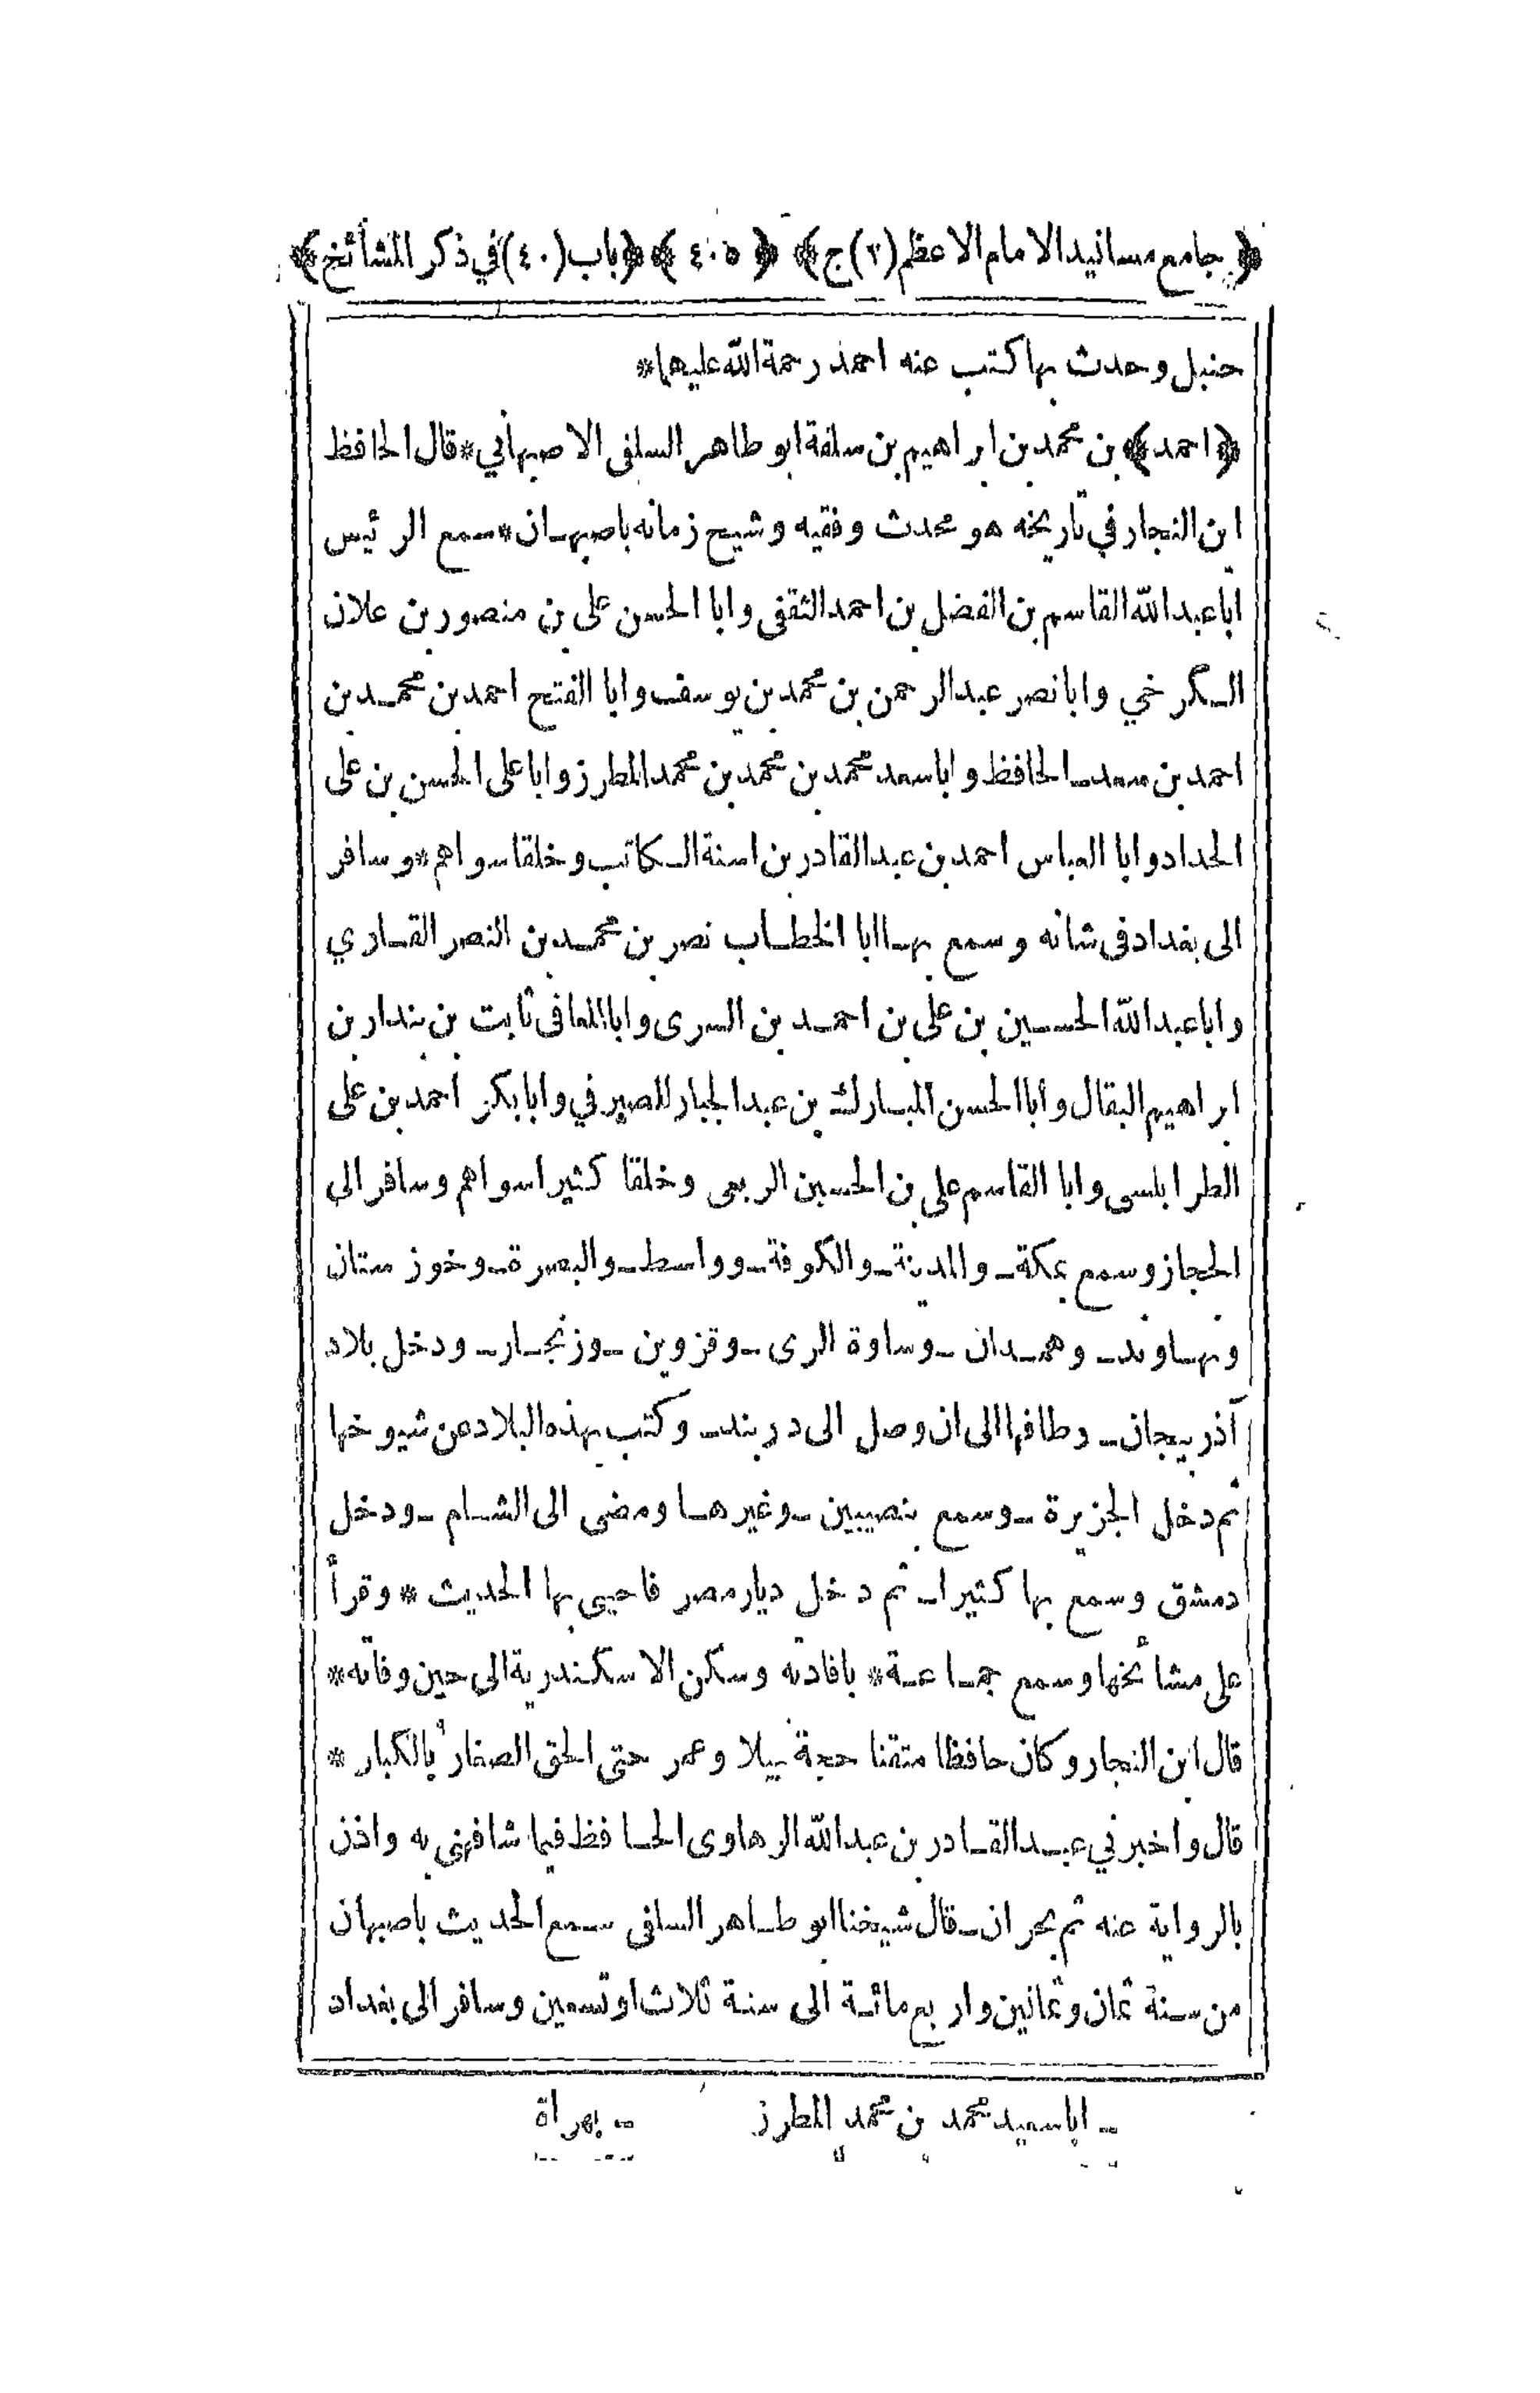 ﴿ جامع مسانيد الامام الاعظم (٢) ج ﴾ ﴿ ٤٠٥ ﴾ ﴿ باب (٤٠) في ذكر المشائخ ﴾
حنبل وحدث بها كتب عنه احمد رحمة الله عليهما *
﴿ احمد ﴾ بن محمد بن ابراهيم بن سلفة ابو طاهر السلفى الاصبهانى * قال الحافظ
ابن النجار في تاريخه هو محدث وفقيه وشيخ زمانه باصبهـان * سمع الرئيس
ابا عبد الله القاسم بن الفضل بن احمد الثقفى وابا الحسن على بن منصور بن علان
الـكرخي وابا نصر عبد الرحمن بن محمد بن يوسف وابا الفتح احمد بن محمـد بن
احمد بن سعد ـ الحافظ وابا سعد محمد بن محمد بن محمد المطرز وابا على الحسن بن على
الحداد وابا العباس احمد بن عبد القادر بن اسنة الـكاتب وخلقا سواهم * وسافر
الى بغداد فى شانه وسمع بهـا ابا الخطـاب نصر بن محمـد بن النصر القـاري
وابا عبد الله الحسـين بن على بن احمـد بن السرى وابا المعافى ثابت بن بندار بن
ابراهيم البقال وابا الحسن المبـارك بن عبد الجبار الصيرفي وابا بكر احمد بن على
الطرابلسى وابا القاسم على بن الحسين الربعى وخلقا كثيرا سواهم وسافر الى
الحجاز وسمع بمكة ـ والمدينة ـ والكوفة ـ وواسط ـ والبصرة ـ وخوزستان
ونهـاوند ـ وهمـدان ـ وساوة الرى ـ وقزوين ـ وزنجـار ـ ودخل بلاد
آذربيجان ـ وطافها الى ان وصل الى دربند ـ وكتب بهذه البلاد عن شيوخها
ثم دخل الجزيرة ـ وسمع بنصيبين ـ وغيرهـا ومضى الى الشـام ـ ودخل
دمشق وسمع بها كثيرا ـ ثم دخل ديار مصر فاحيى بها الحديث * وقرأ
على مشائخها وسمع جمـاعـة * بافادته وسكن الاسكندرية الى حين وفاته *
قال ابن النجار وكان حافظا متقنا حجة نبيلا وعمر حتى الحق الصغار بالكبار *
قال واخبرني عبـد القـادر بن عبد الله الرهاوى الحـافظ فيما شافهنى به واذن
بالرواية عنه ثم بحران ـ قال شيخنا ابو طـاهر السلفى سـمع الحديث باصبهان
من سـنة ثمان وثمانين واربع مائـة الى سنـة ثلاث او تسعين وسافر الى بغداد
ـ ابا سعيد محمد بن محمد المطرز ـ بهراة